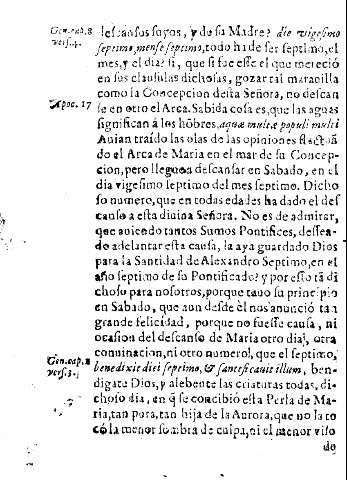 Gen.cap.8
vers.4.
descansos suyos, y de su Madre? die vigesimo
septimo, mense septimo, todo ha de ser septimo, el
mes, y el dia? si, que si fue esse el que mereciò
en sus clausulas dichosas, gozar tal maravilla
como la Concepcion desta Señora, no descan
se en otro el Arca. Sabida cosa es, que las aguas
Apoc. 17
significan à los hõbres, aquæ multæ populi multi
Auian traído las olas de las opiniones fluctuã
do el Arca de Maria en el mar de su Concep-
cion, pero llegò a descansar en Sabado, en el
dia vigesimo septimo del mes septimo. Dicho
so numero, que en todas edades ha dado el des
canso a esta diuina Señora. No es de admirar,
que auiendo tantos Sumos Pontifices, dessea-
do adelantar esta causa, la aya guardado Dios
para la Santidad de Alexandro Septimo, en el
año septimo de su Pontificado? y por esto tã di
choso para nosotros, porque tuuo su principio
en Sabado, que aun desde èl nos anunciò tan
grande felicidad, porque no fuesse causa, ni
ocasion del descanso de Maria otro dia, otra
conuinacion, ni otro numero, que el septimo,
Gen.cap.2
vers.3.
benedixit diei septimo, & sanctificauit illum, ben-
digate Dios, y alebente las criaturas todas, di-
choso dia, en q̃ se concibiò esta Perla de Ma-
ria, tan pura, tan hija de la Aurora, que no la to
cò la menor sombra de culpa, ni el menor viso
de